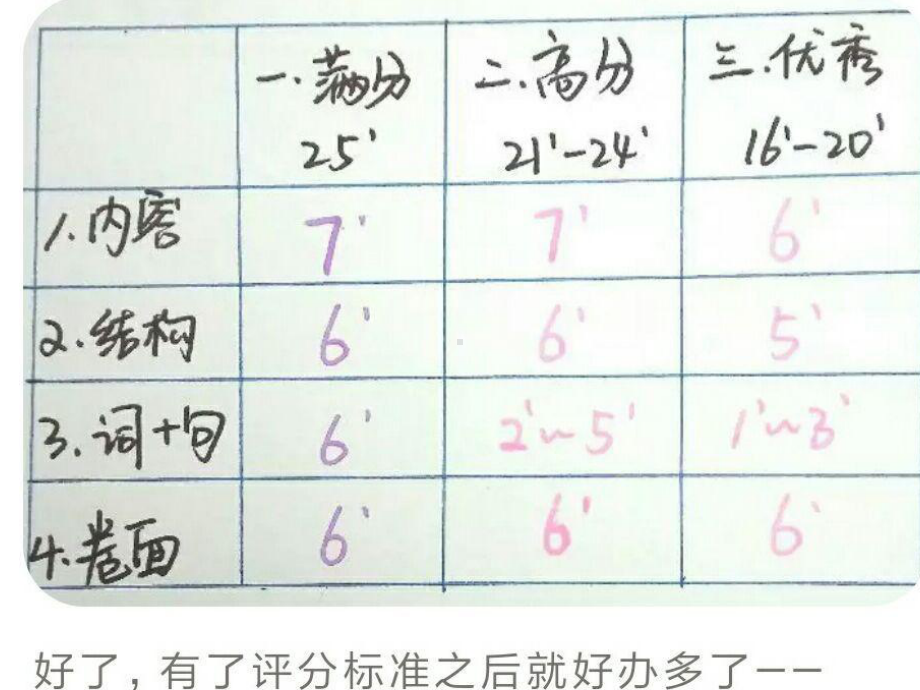 一.满分 二.高分 三.优秀
25' 21'-24' 16'-20'
1.内容 7' 7' 6'
2.结构 6' 6' 5'
3.词+句 6' 2'~5' 1'~3'
4.卷面 6' 6' 6'
好了，有了评分标准之后就好办多了——